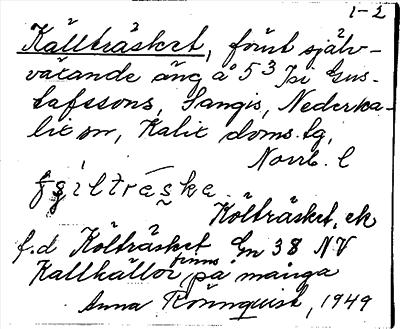 1-2
Källträsket, förut själv-
varande äng å 5³ Jsi Gus-
tafssons, Sangis, Nederka-
lix sn, Kalix doms.tg,
Norrb. l
Költräsket, ek
f.d Költräsket Gn 38 NV
Kallkällor finns på många
Anna Rönnquist, 1949